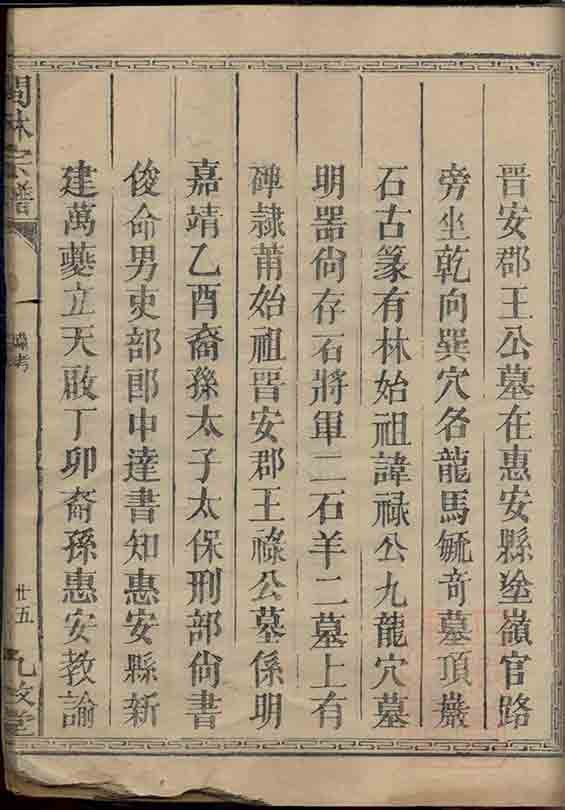 晋安郡王公墓在惠安縣塗嶺官路
旁坐乾向巽穴名龍馬毓奇墓頂巖
石古篆有林始祖諱祿公九龍穴墓
明器尙存石將軍二石羊二墓上有
碑隷莆始祖晋安郡王祿公墓係明
嘉靖乙酉裔孫太子太保刑部尙書
俊命男吏部郎中達書知惠安縣新
建萬夔立天啟丁卯裔孫惠安教諭
林宗譜
考
廿五